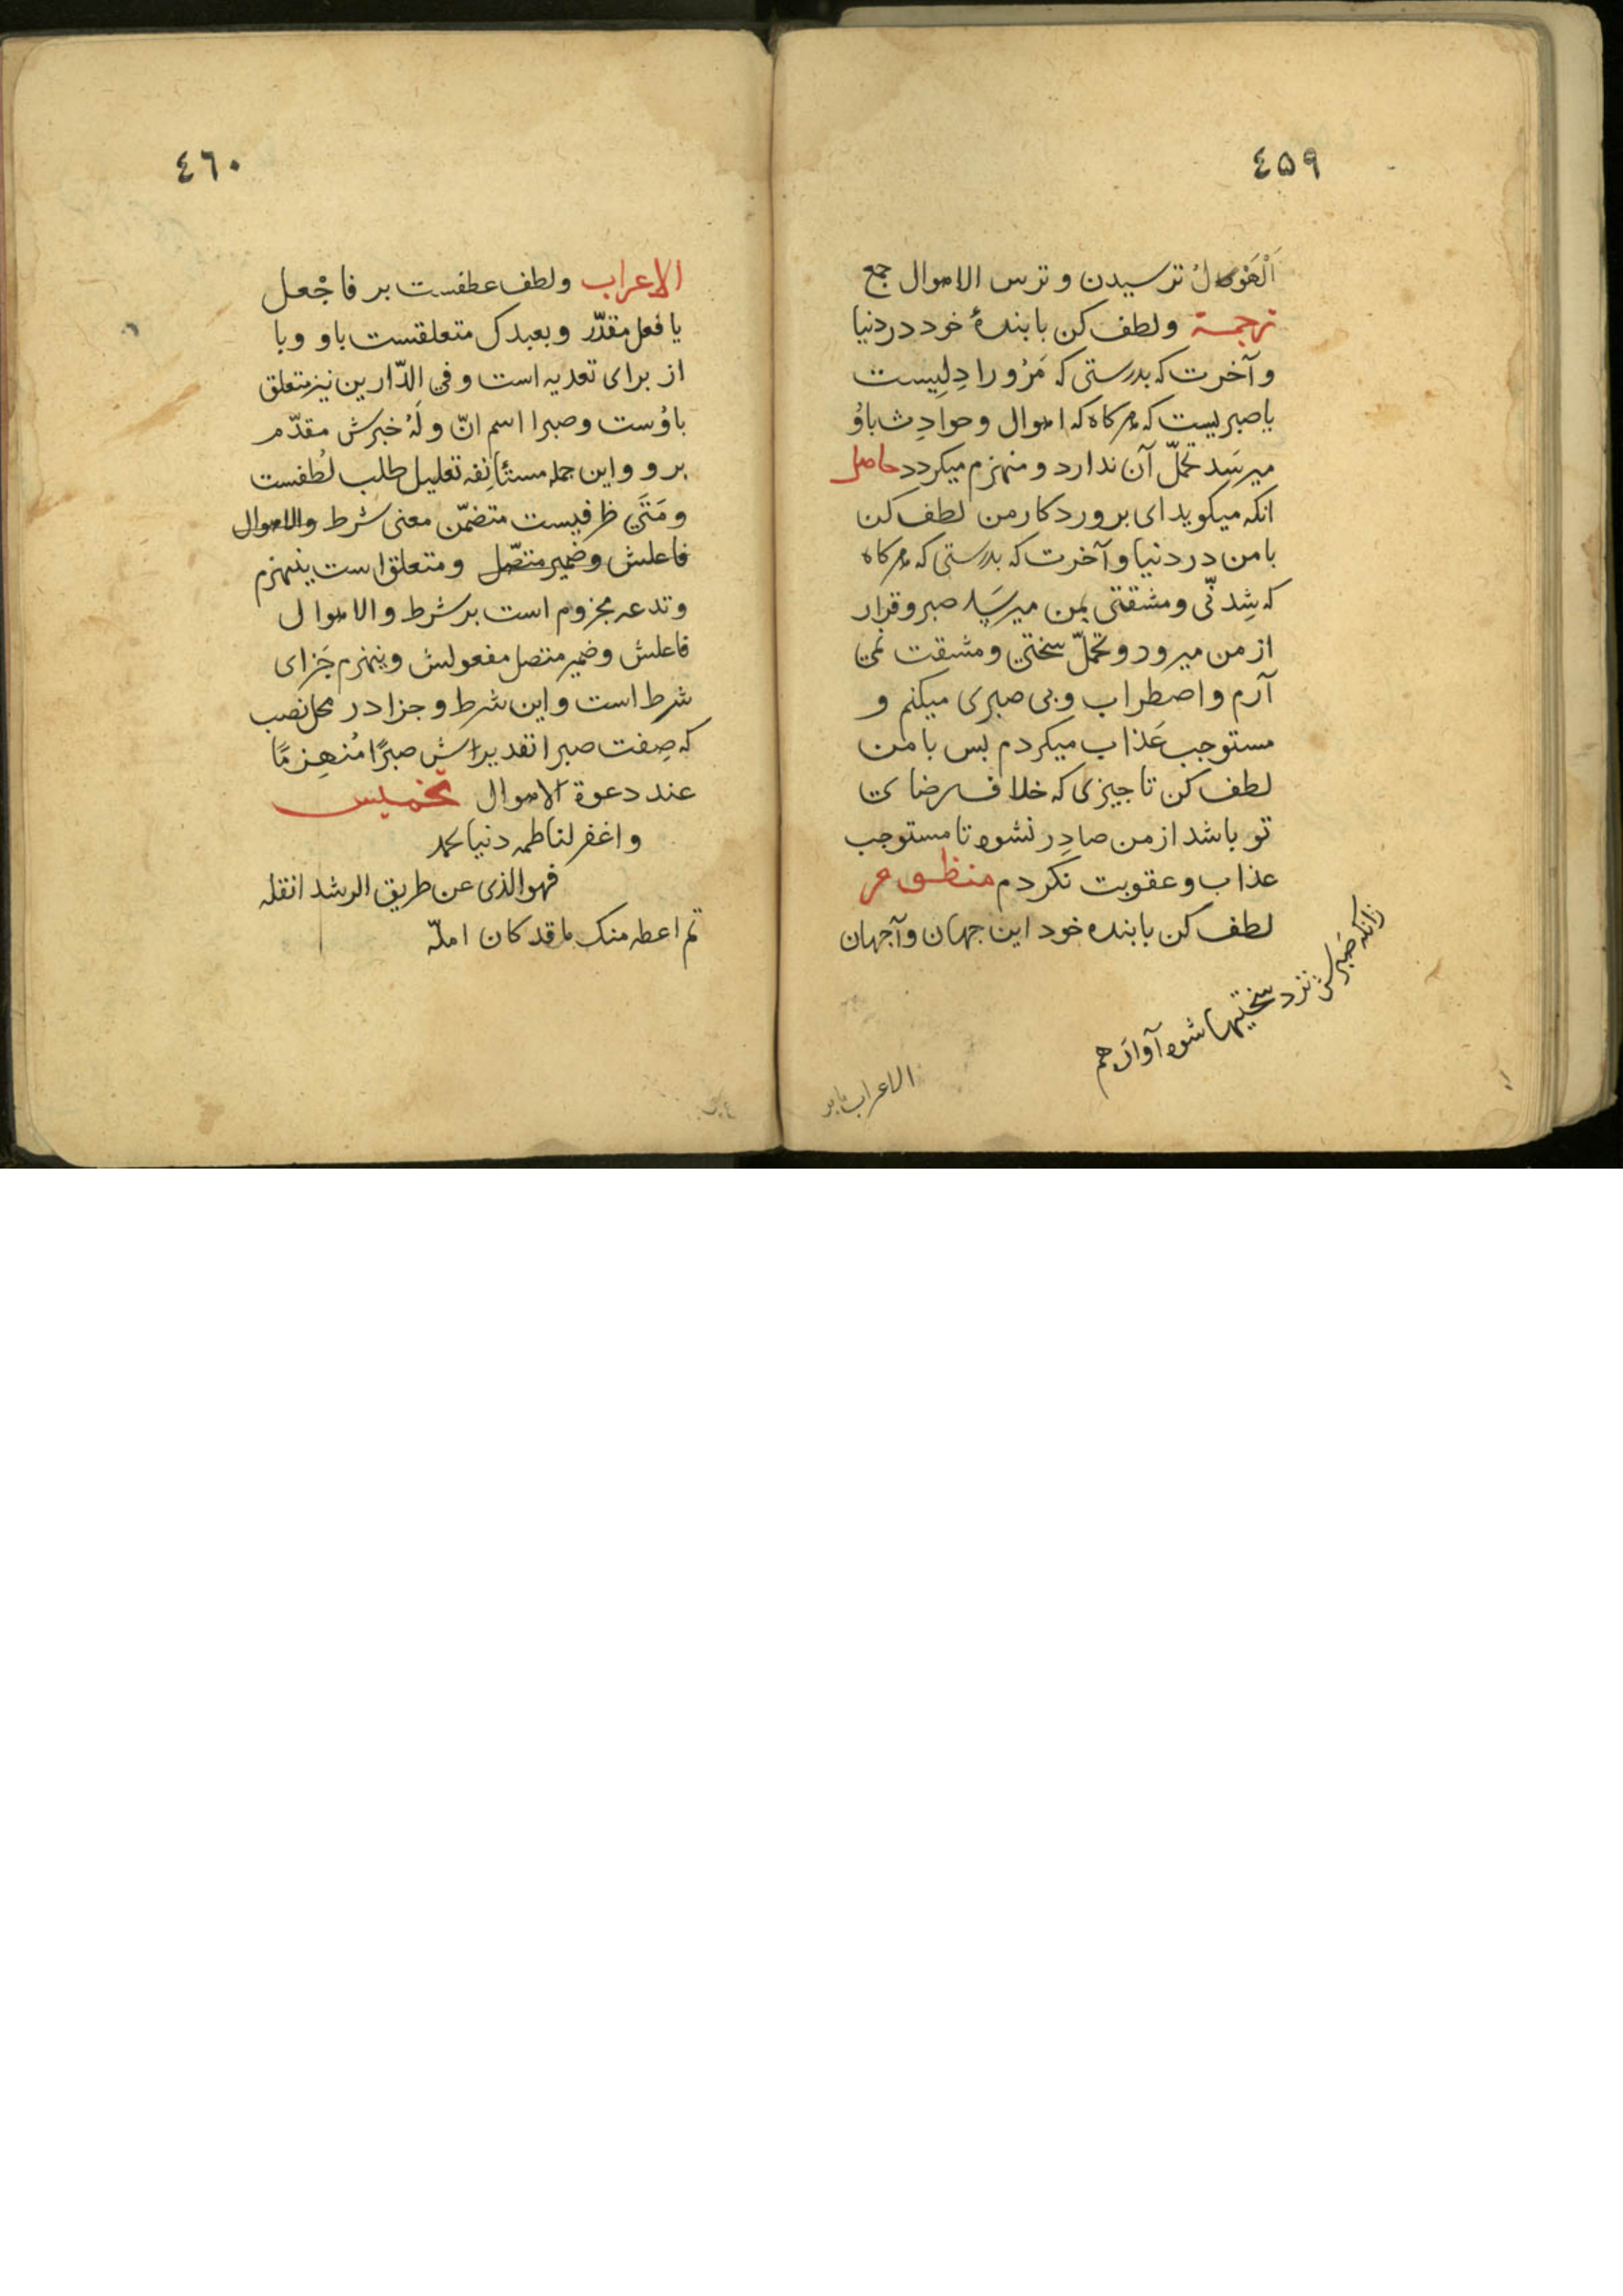 ٤٥٩
اَلْهَوْلُ ترسیدن و ترس الاهوال جمع
ترجمة ولطف کن با بندهٔ خود در دنیا
و آخرت که بدرستی که مَرْ ورا دِلیست
یا صبریست که هرکاه که اهوال و حوادِث باوُ
میرسَد تحمّل آن ندارد و منهزم میکردد حاصل
انکه میکوید ای برورد کار من لطف کن
با من در دنیا و آخرت که بدرستی که هرکاه
که شِدتّی و مشقتی بمن میرسَد صبر و قرار
از من میرود و تحمّل سختی و مشقت نمی
آرم و اضطراب و بی صبری میکنم و
مستوجب عَذاب میکردم بس با من
لطف کن تا جیزی که خلاف رضای
تو باشد از من صادِر نشود تا مستوجب
عذاب و عقوبت نکردم منظومه
لطف کن با بنده خود این جهان و آجهان
زانکه صَبرش نزد سختیها شود آوارَ هم
الاعراب
٤٦٠
الاعراب ولطف عطفست بر فاجْعل
یا فعل مقدّر و بعبدک متعلقست باو و با
از برای تعدیه است و فی الدّارین نیز متعلق
باوُست و صبرا اسم انّ و لَهُ خبرش مقدّم
برو و این جمله مستأنِفه تعلیل طلب لُطفست
و مَتَی ظرفیست متضمّن معنی شرط والاهوال
فاعلش و ضمیر متصّل و متعلق است بینهزم
و تدعه مجزوم است بر شرط والاهوال
فاعلش و ضمیر متصل مفعولش و ینهزم جَزای
شرط است و این شرط و جزا در محل نصب
که صِفت صبرا تقدیراش صبرًا مُنهزِمًا
عند دعوة الاهوال تخمیس
و اغفر لناظمه دنیا محمد
فهو الذی عن طریق الرشد انقله
ثم اعطه منک ما قد کان امله